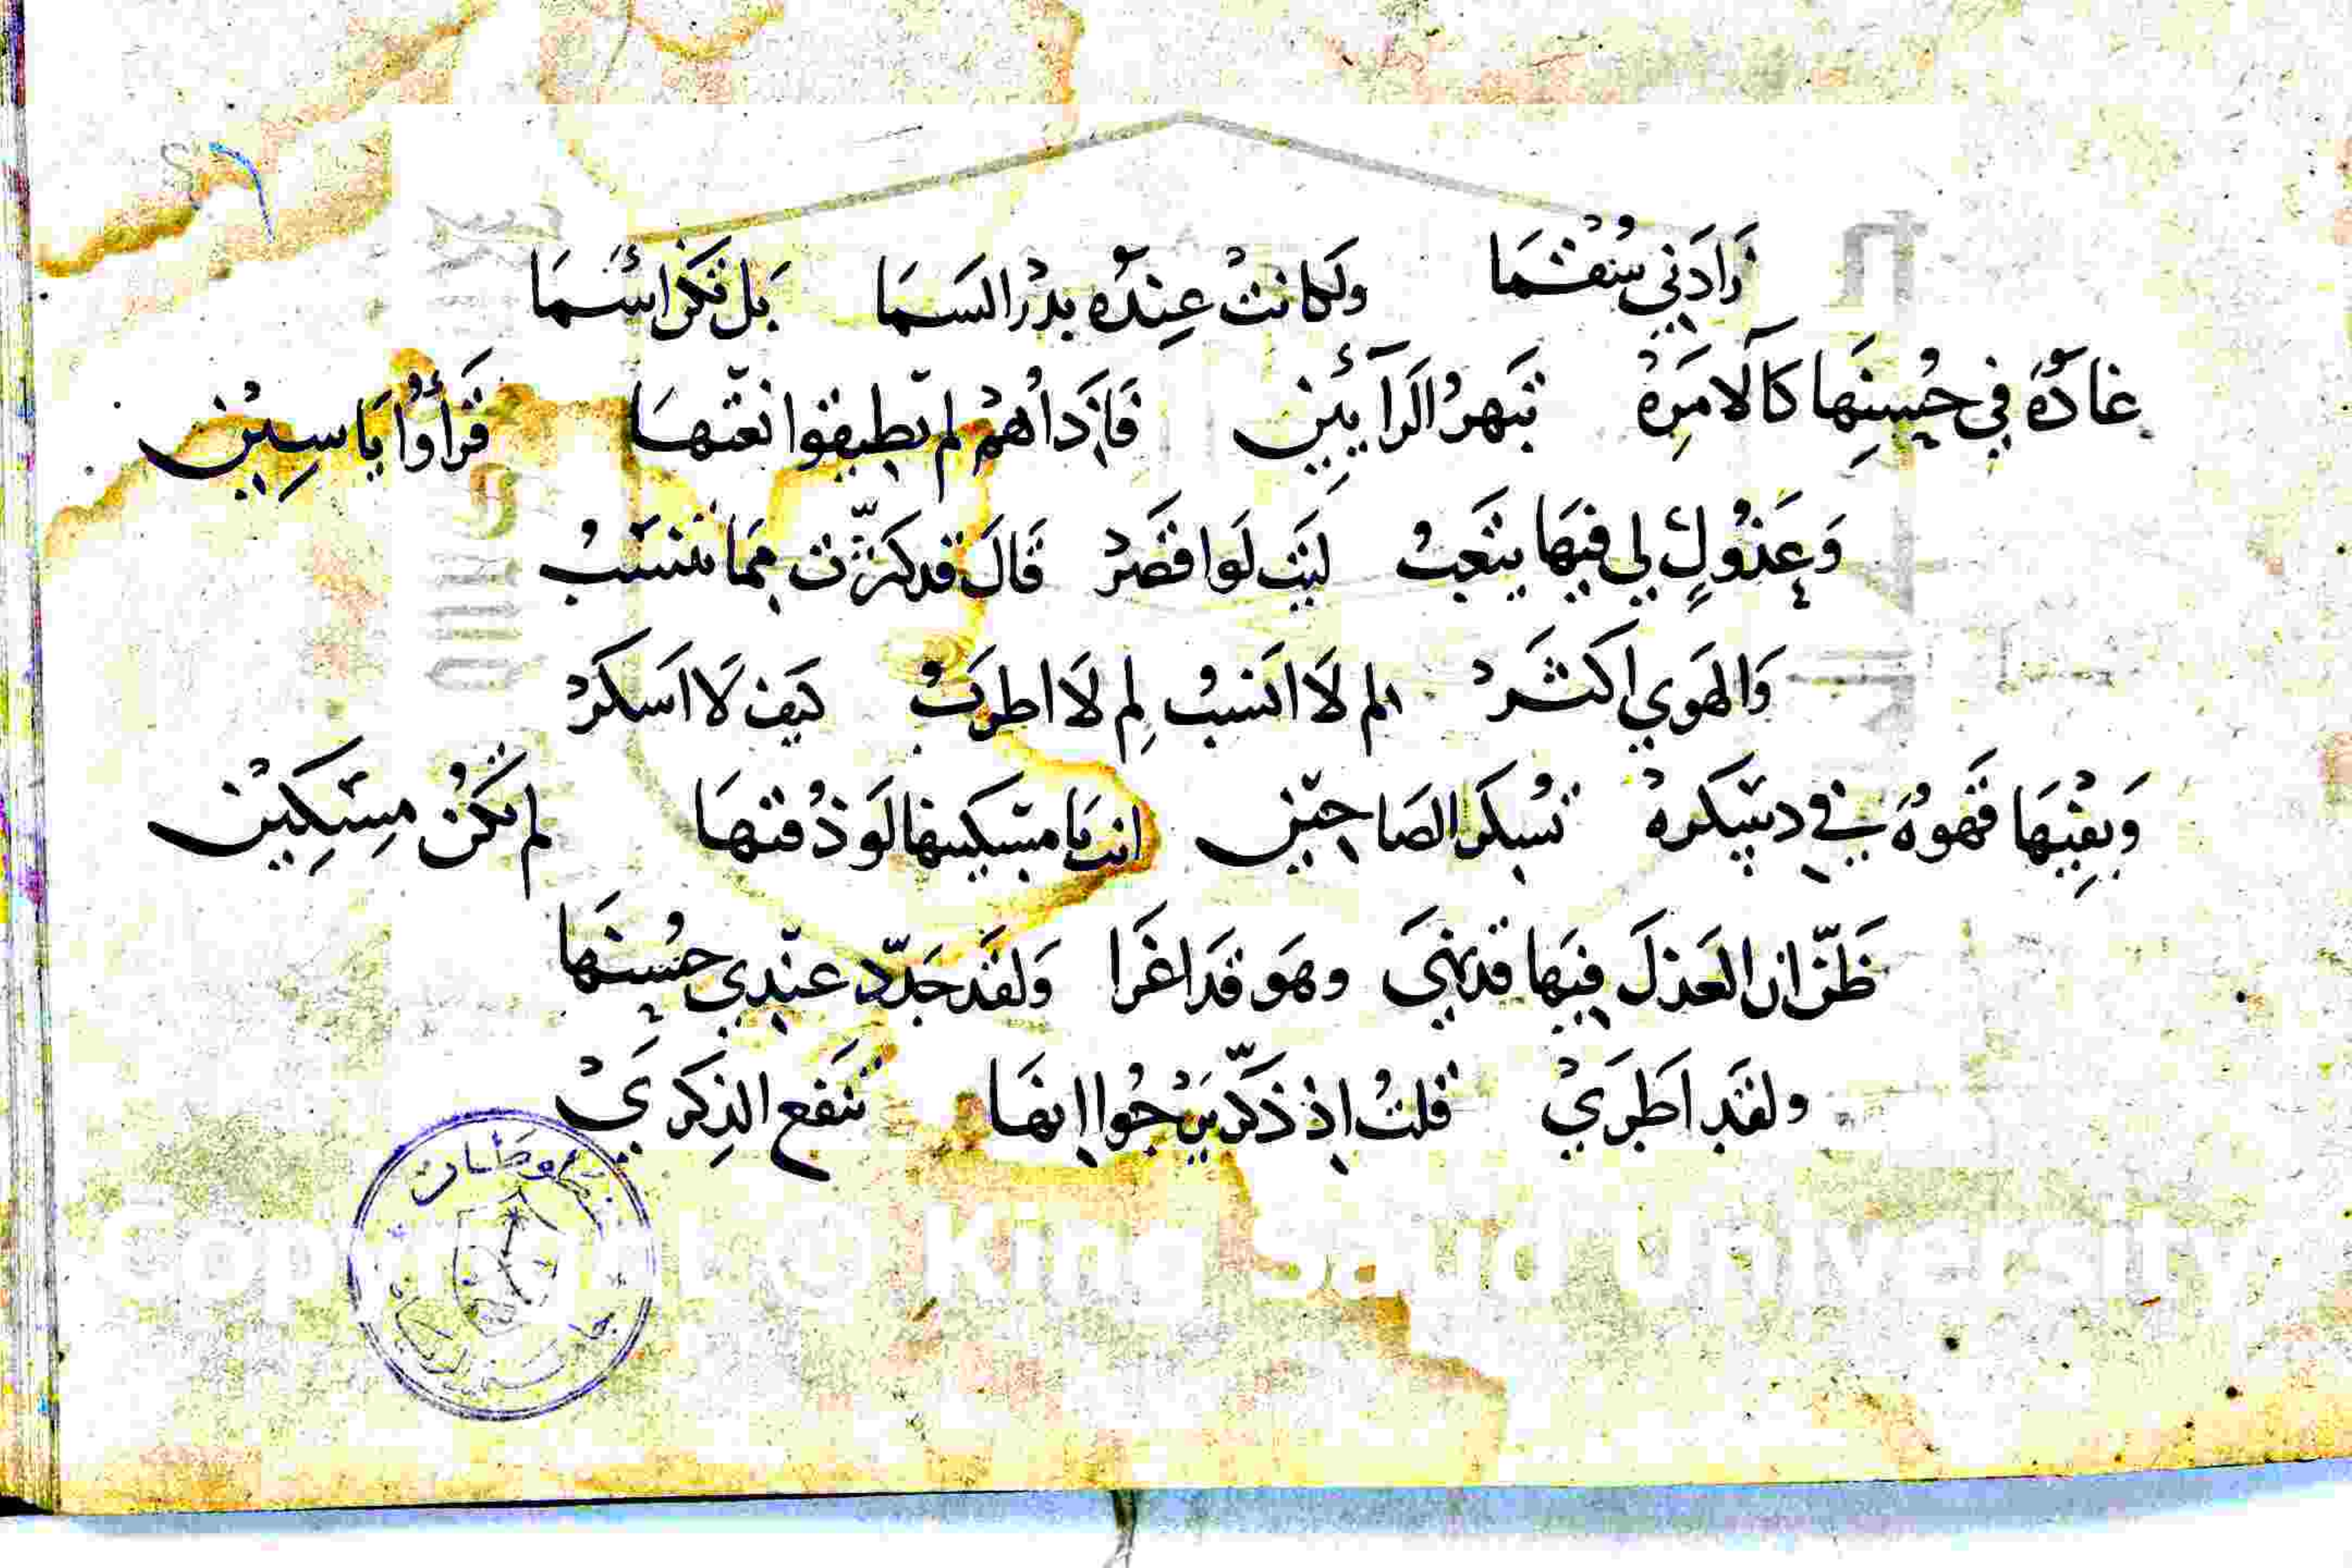 زَادَنِي سُقْمَا ولَو كانتْ عِندَهُ بدْرُ السَمَا بَل تكُن اسْمَا
غادَةٌ في حُسنِها كالآمِرَهْ تبهَرُ الرَآئِين فَإذَا هُمْ لم يُطيقوا نعْتهَا قرَأوْا يَاسِيْن
وَعَذُولٍ لي فيهَا يتعَبُ ليَت لَوا قصَرْ قَالَ قد كرّرْت مِمَا تنسَبُ
وَالهَوي اكثَرْ لم لَا انسَبُ لِم لَا اطرَبُ كيَف لَا اَسكَرْ
وَبفِيهَا قَهوةٌ في دسكره تُسكرَ الصَاحين انت يَا مسكينها لَو ذُقتهَا لم تكُنْ مِسكِيْن
ظَنّ ان العَذلَ فيَها قد نهيَ وهوَ قَد اغرَا وَلقَد جَدّد عندِي حُسنهَا
ولقَد اطرَيْ قلتُ اذ ذكّر يَرْجُوا انهَا تنَفع الذِكرَيْ
Copyright © King Saud University